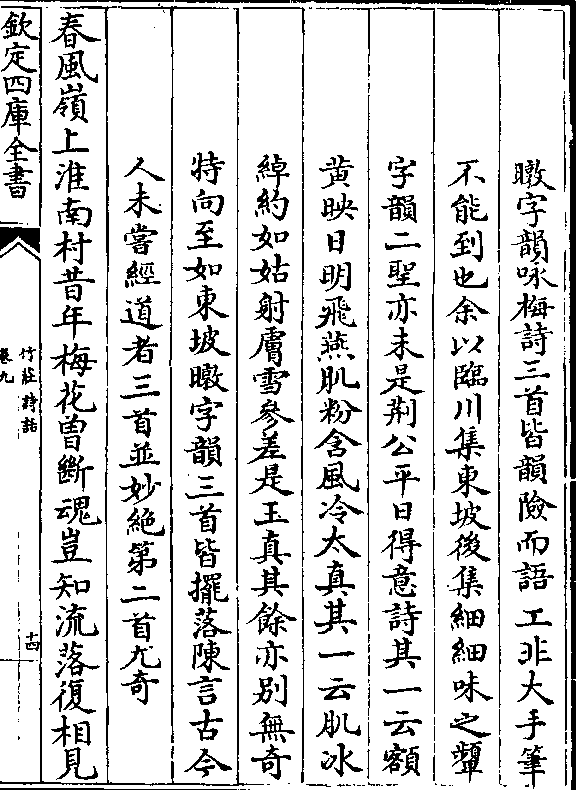 暾字韻咏梅詩三首皆韻險而語工非大手筆
不能到也余以臨川集東坡後集細細味之顰
字韻二聖亦未是荆公平日得意詩其一云額
黄映日明飛燕肌粉含風冷太真其一云肌冰
綽約如姑射膚雪參差是玉真其餘亦别無奇
特向至如東坡暾字韻三首皆擺落陳言古今
人未嘗經道者三首並妙絶第二首尤奇
春風嶺上淮南村昔年梅花曽斷魂豈知流落復相見
欽定四庫全書
竹莊詩話
卷九
十四